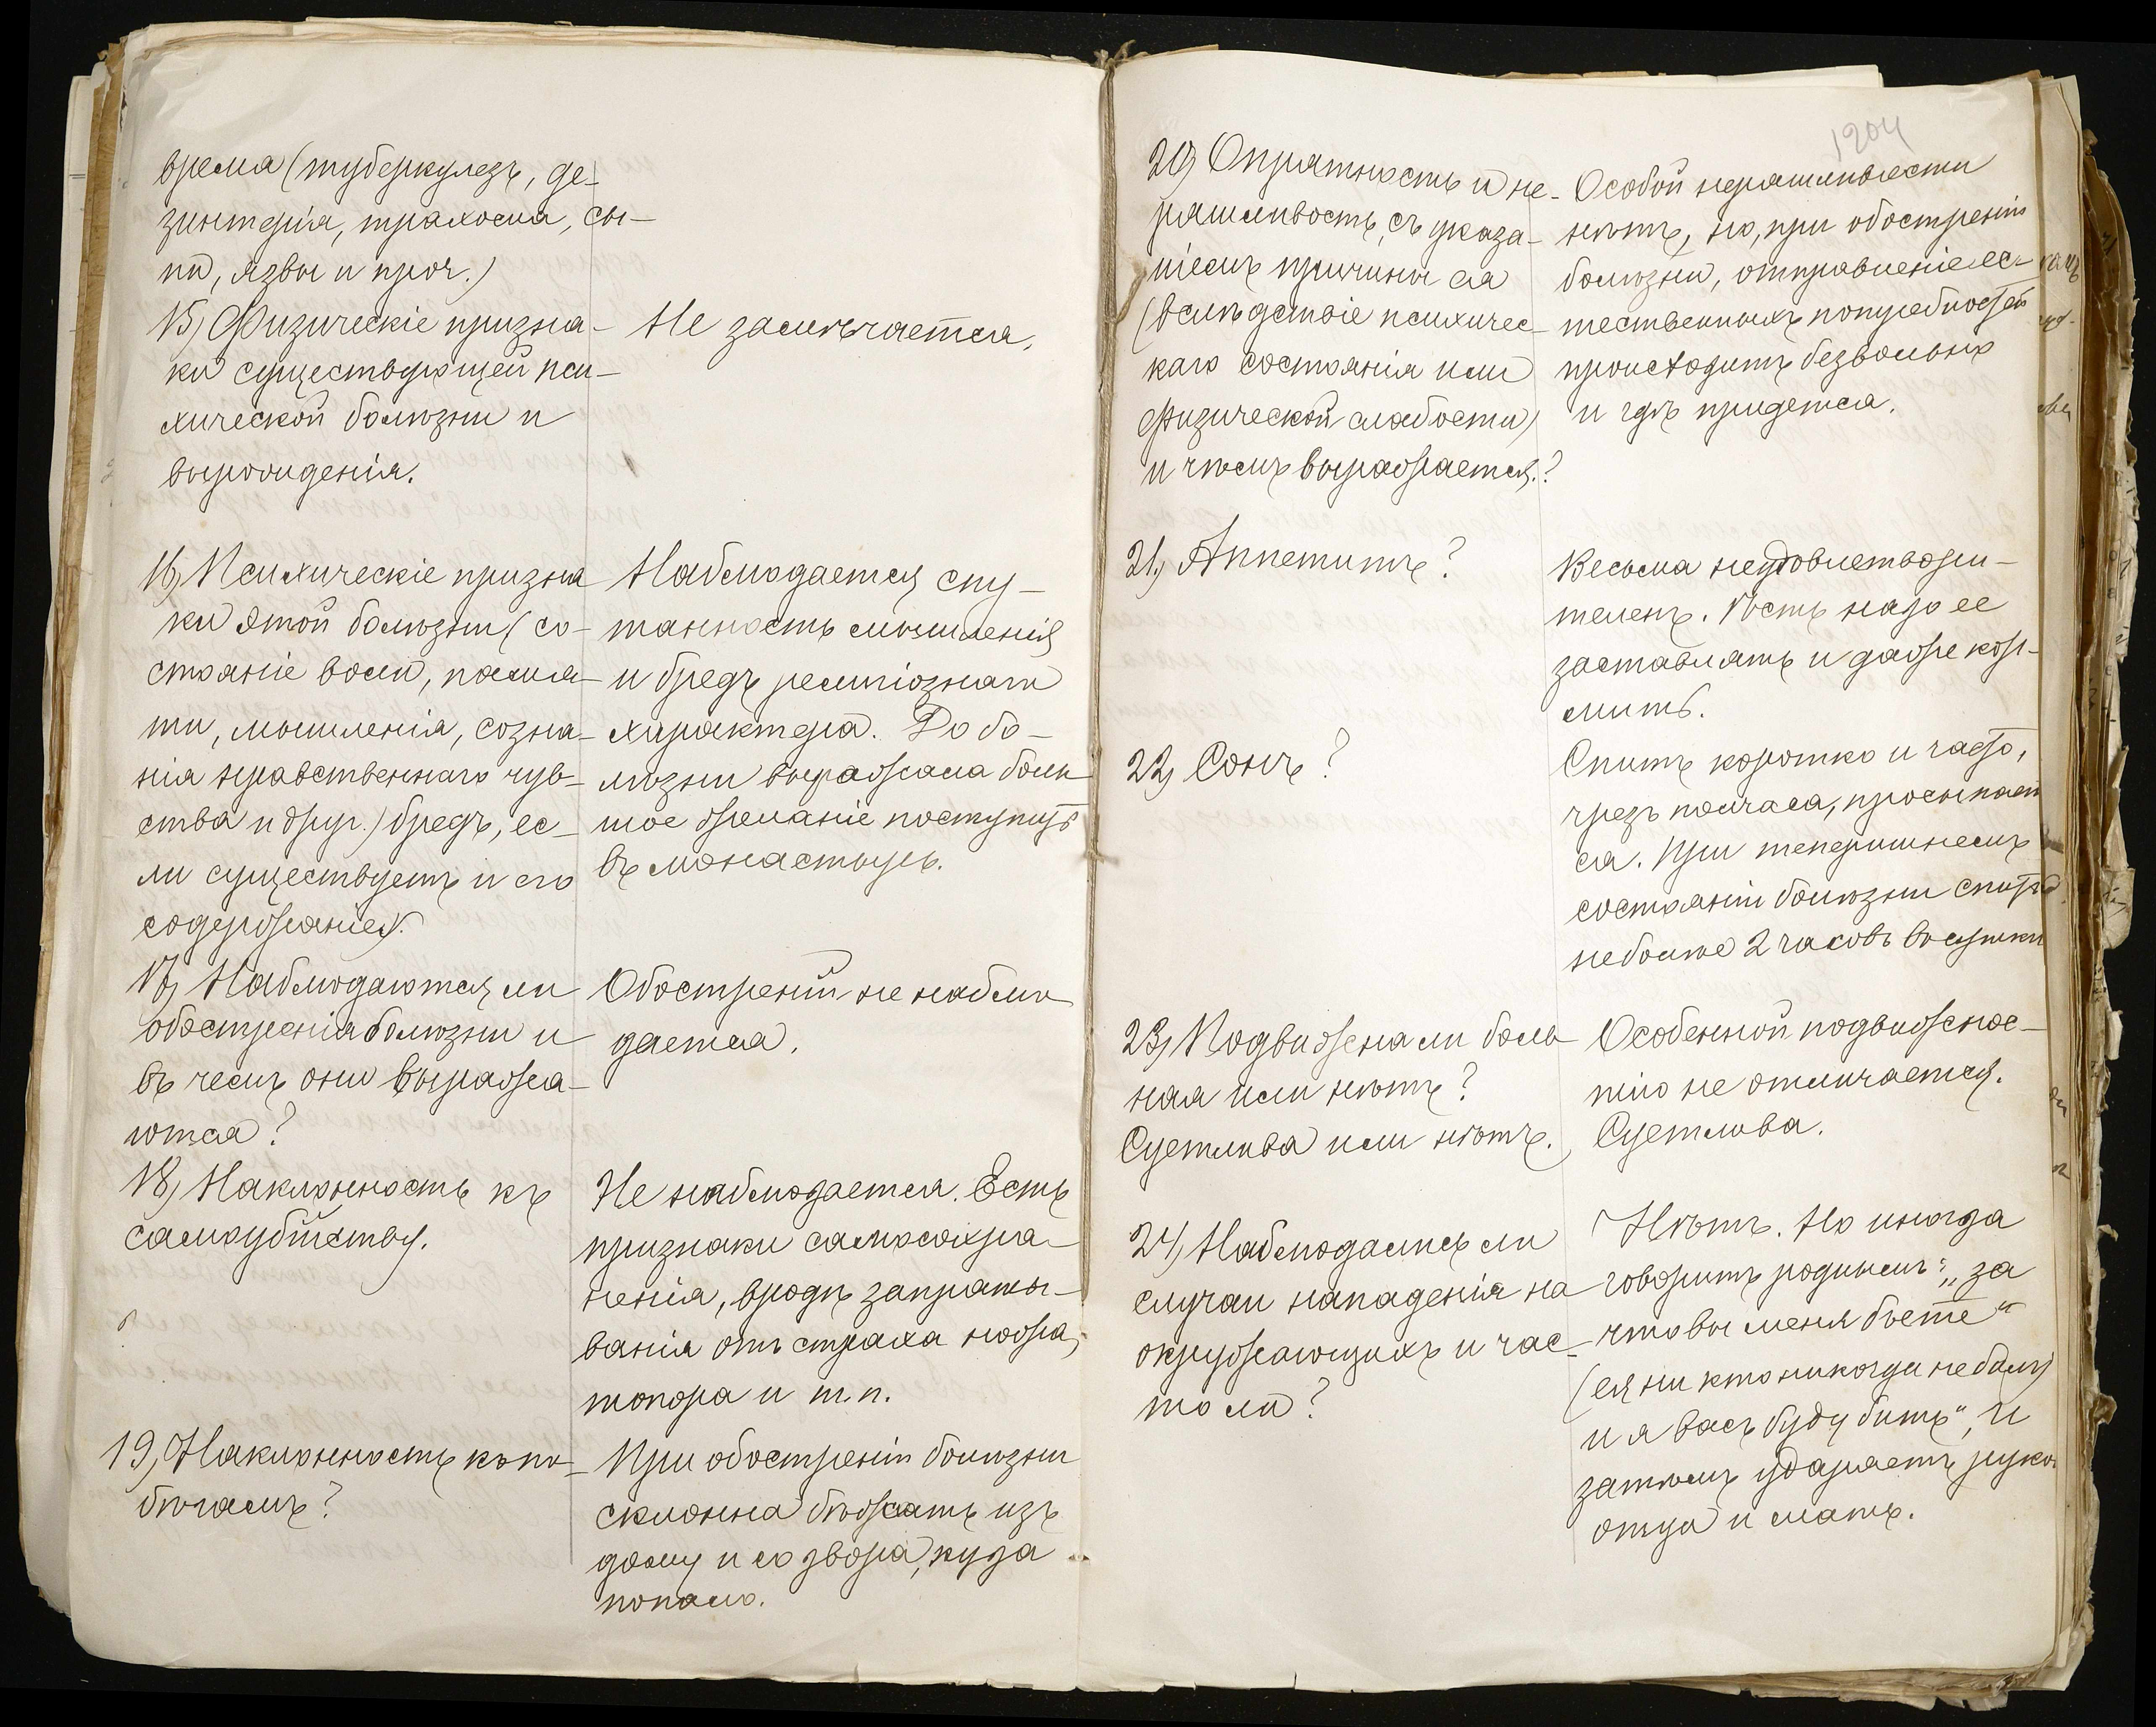 время (туберкулезъ, ди-
зинтерія, трахома, сы-
пи, язвы и проч.)
15) Физическіе призна-
ки существующей пси-
хической болѣзни и
вырожденія.
Не замѣчается.
16) Психическіе призна
ки этой болѣзни (со-
стояніе воли, памя-
ти, мышленія, созна-
нія нравственнаго чув-
ства и друг.) бредъ, ес-
ли существуетъ и его
содержаніе).
Наблюдается спу-
танность мышленія
и бредъ религіознаго
характера. До бо-
лѣзни выражала боль
шое желаніе поступить
въ монастырь.
17) Наблюдаются ли
обостренія болѣзни и
въ чемъ они выража-
ются?
Обостреній не наблю
дается.
18) Наклонность къ
самоубійству.
Не наблюдается. Есть
признаки самосохра-
ненія, вродѣ запряты-
ванія отъ страха ножа,
топора и т.п.
19) Наклонность къ по-
бѣгамъ?
При обостреніи болѣзни
склонна бѣжать изъ
дому и со двора, куда
попало.
1204
20) Опрятность и не-
ряшливость, съ указа-
ніемъ причины ея
(вслѣдствіе психичес-
каго состоянія или
физической слабости)
и чѣмъ выражается?
Особой неряшливости
нѣтъ, но, при обостреніи
болѣзни, отправленіе ес-
тественныхъ потребностей
происходитъ безвольно
и гдѣ придется.
21) Аппетитъ?
Весьма неудовлетвори-
теленъ. Ѣсть надо ее
заставлять и даже кор-
мить.
22) Сонъ?
Спитъ коротко и часто,
чрезъ полчаса, просыпает
ся. При теперишнемъ
состояніи болѣзни спитъ
не болѣе 2 часовъ въ сутки
23) Подвижна ли боль
ная или нѣтъ?
Суетлива или нѣтъ.
Особенной подвижнос-
тію не отличается.
Суетлива.
24) Наблюдались ли
случаи нападенія на
окружающихъ и час-
то ли?
Нѣтъ. Но иногда
говоритъ роднымъ: „за
что вы меня бьете"
(ея ни кто никогда не билъ)
и я васъ буду бить", и
затѣмъ ударяетъ рукой
отца и мать.